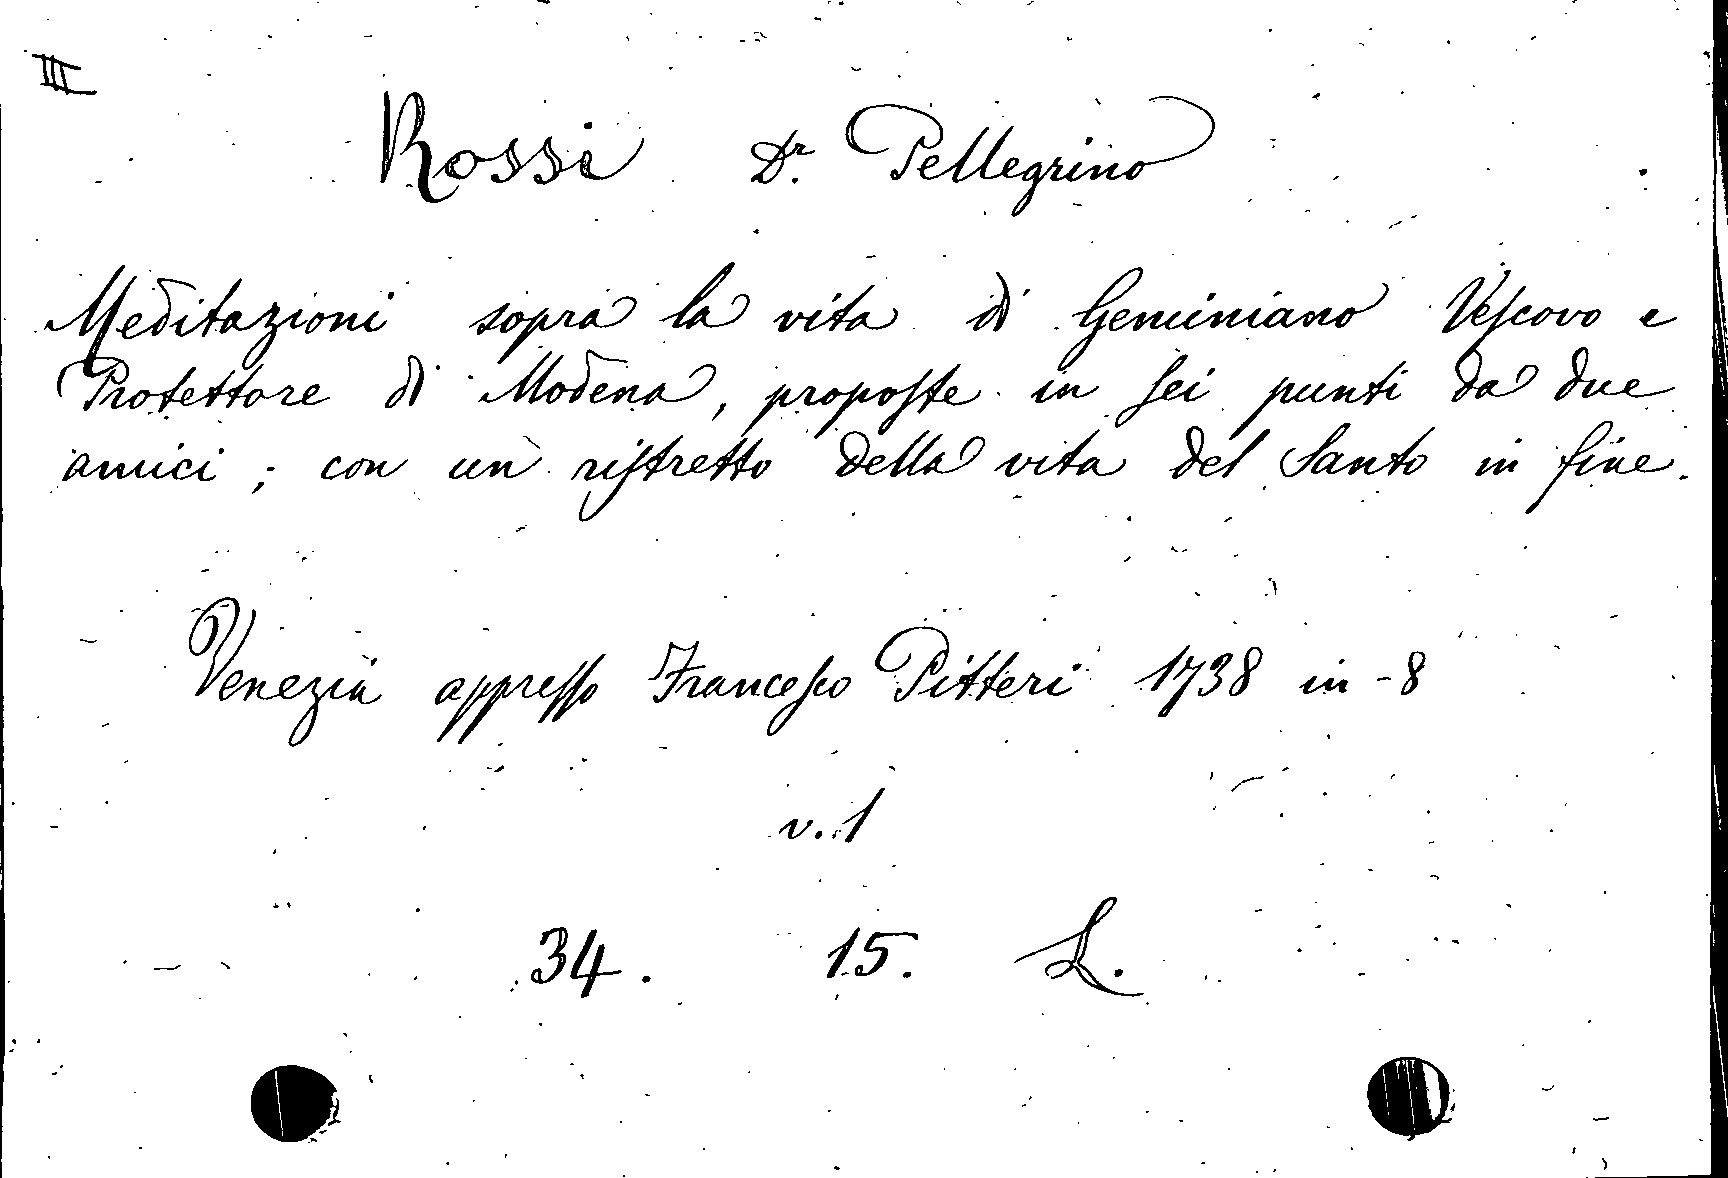 III
Rossi Dr. Pellegrino
Meditazioni sopra la vita di Geminiano Vescovo e
Protettore di Modena, proposte in sei punti da due
amici; con un ristretto della vita del Santo in fine.
Venezia appresso Francesco Pitteri 1738 in-8
v. 1
34. 15. L.